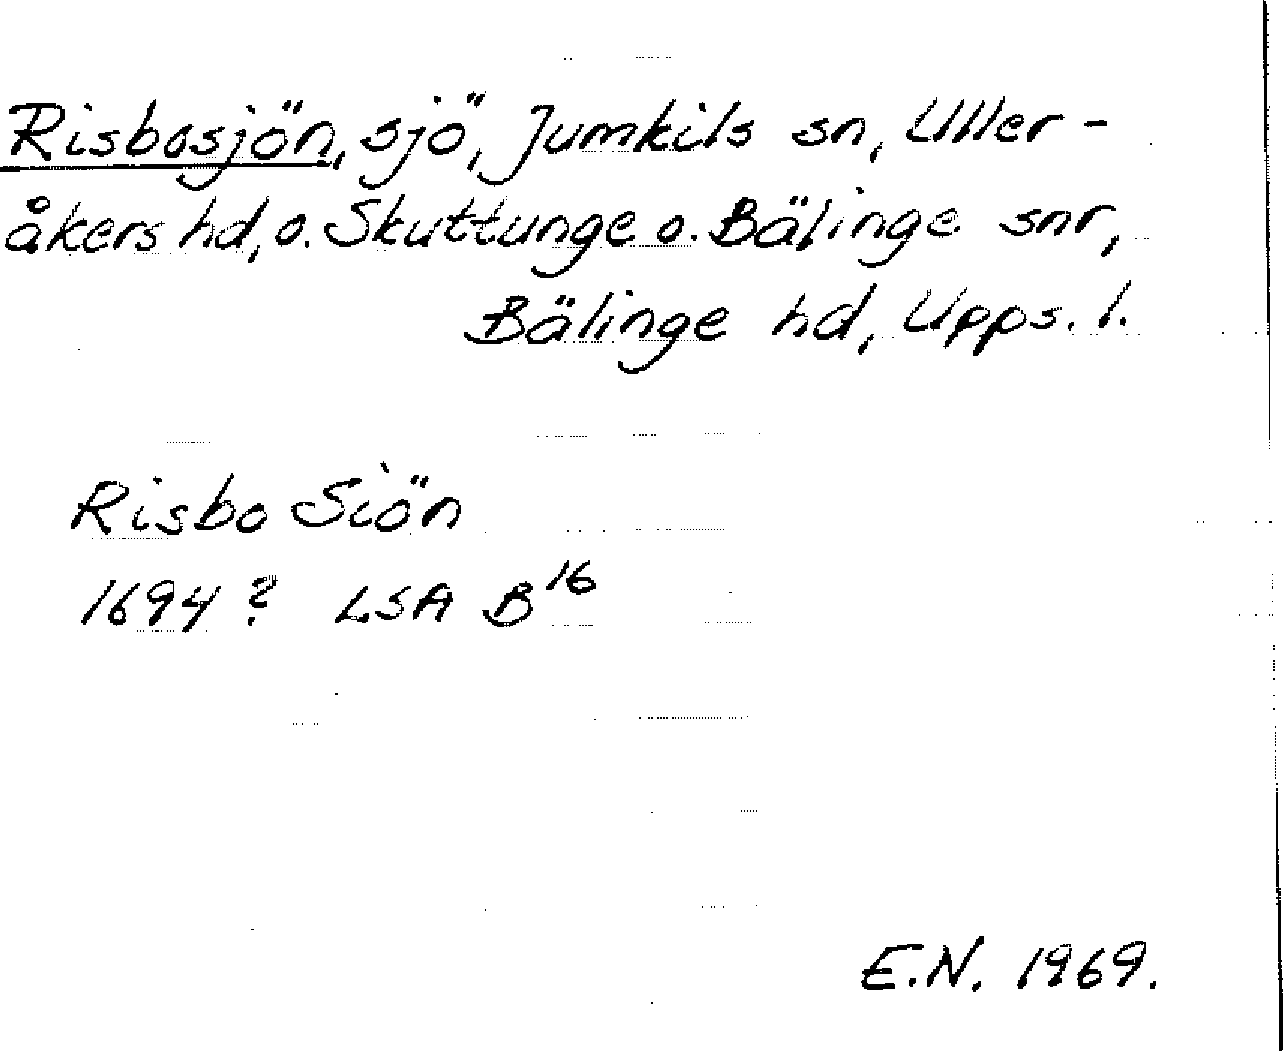 Risbosjön, sjö, Jumkils sn, Uller-
åkers hd, o. Skuttunge o. Bälinge snr,
Bälinge hd, Upps. l.
Risbo Siön
1694? LSA B16
E.N. 1969.